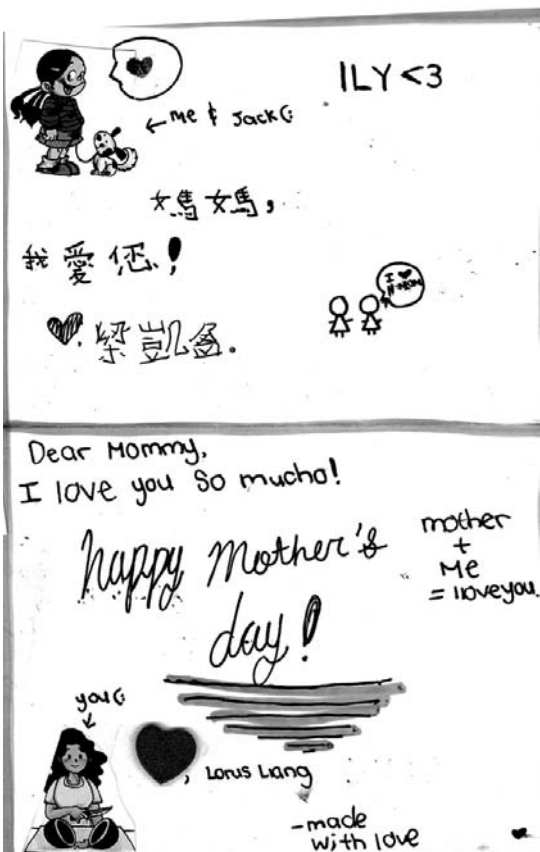 ILY<3
← Me & Jack(:
媽媽,
我愛您!
♥, 梁凱
I ♥
#MOM
Dear Mommy,
I love you so mucho!
happy Mother's
day!
mother
+
Me
= iloveyou
you(:
, Lorus Liang
-made
with love